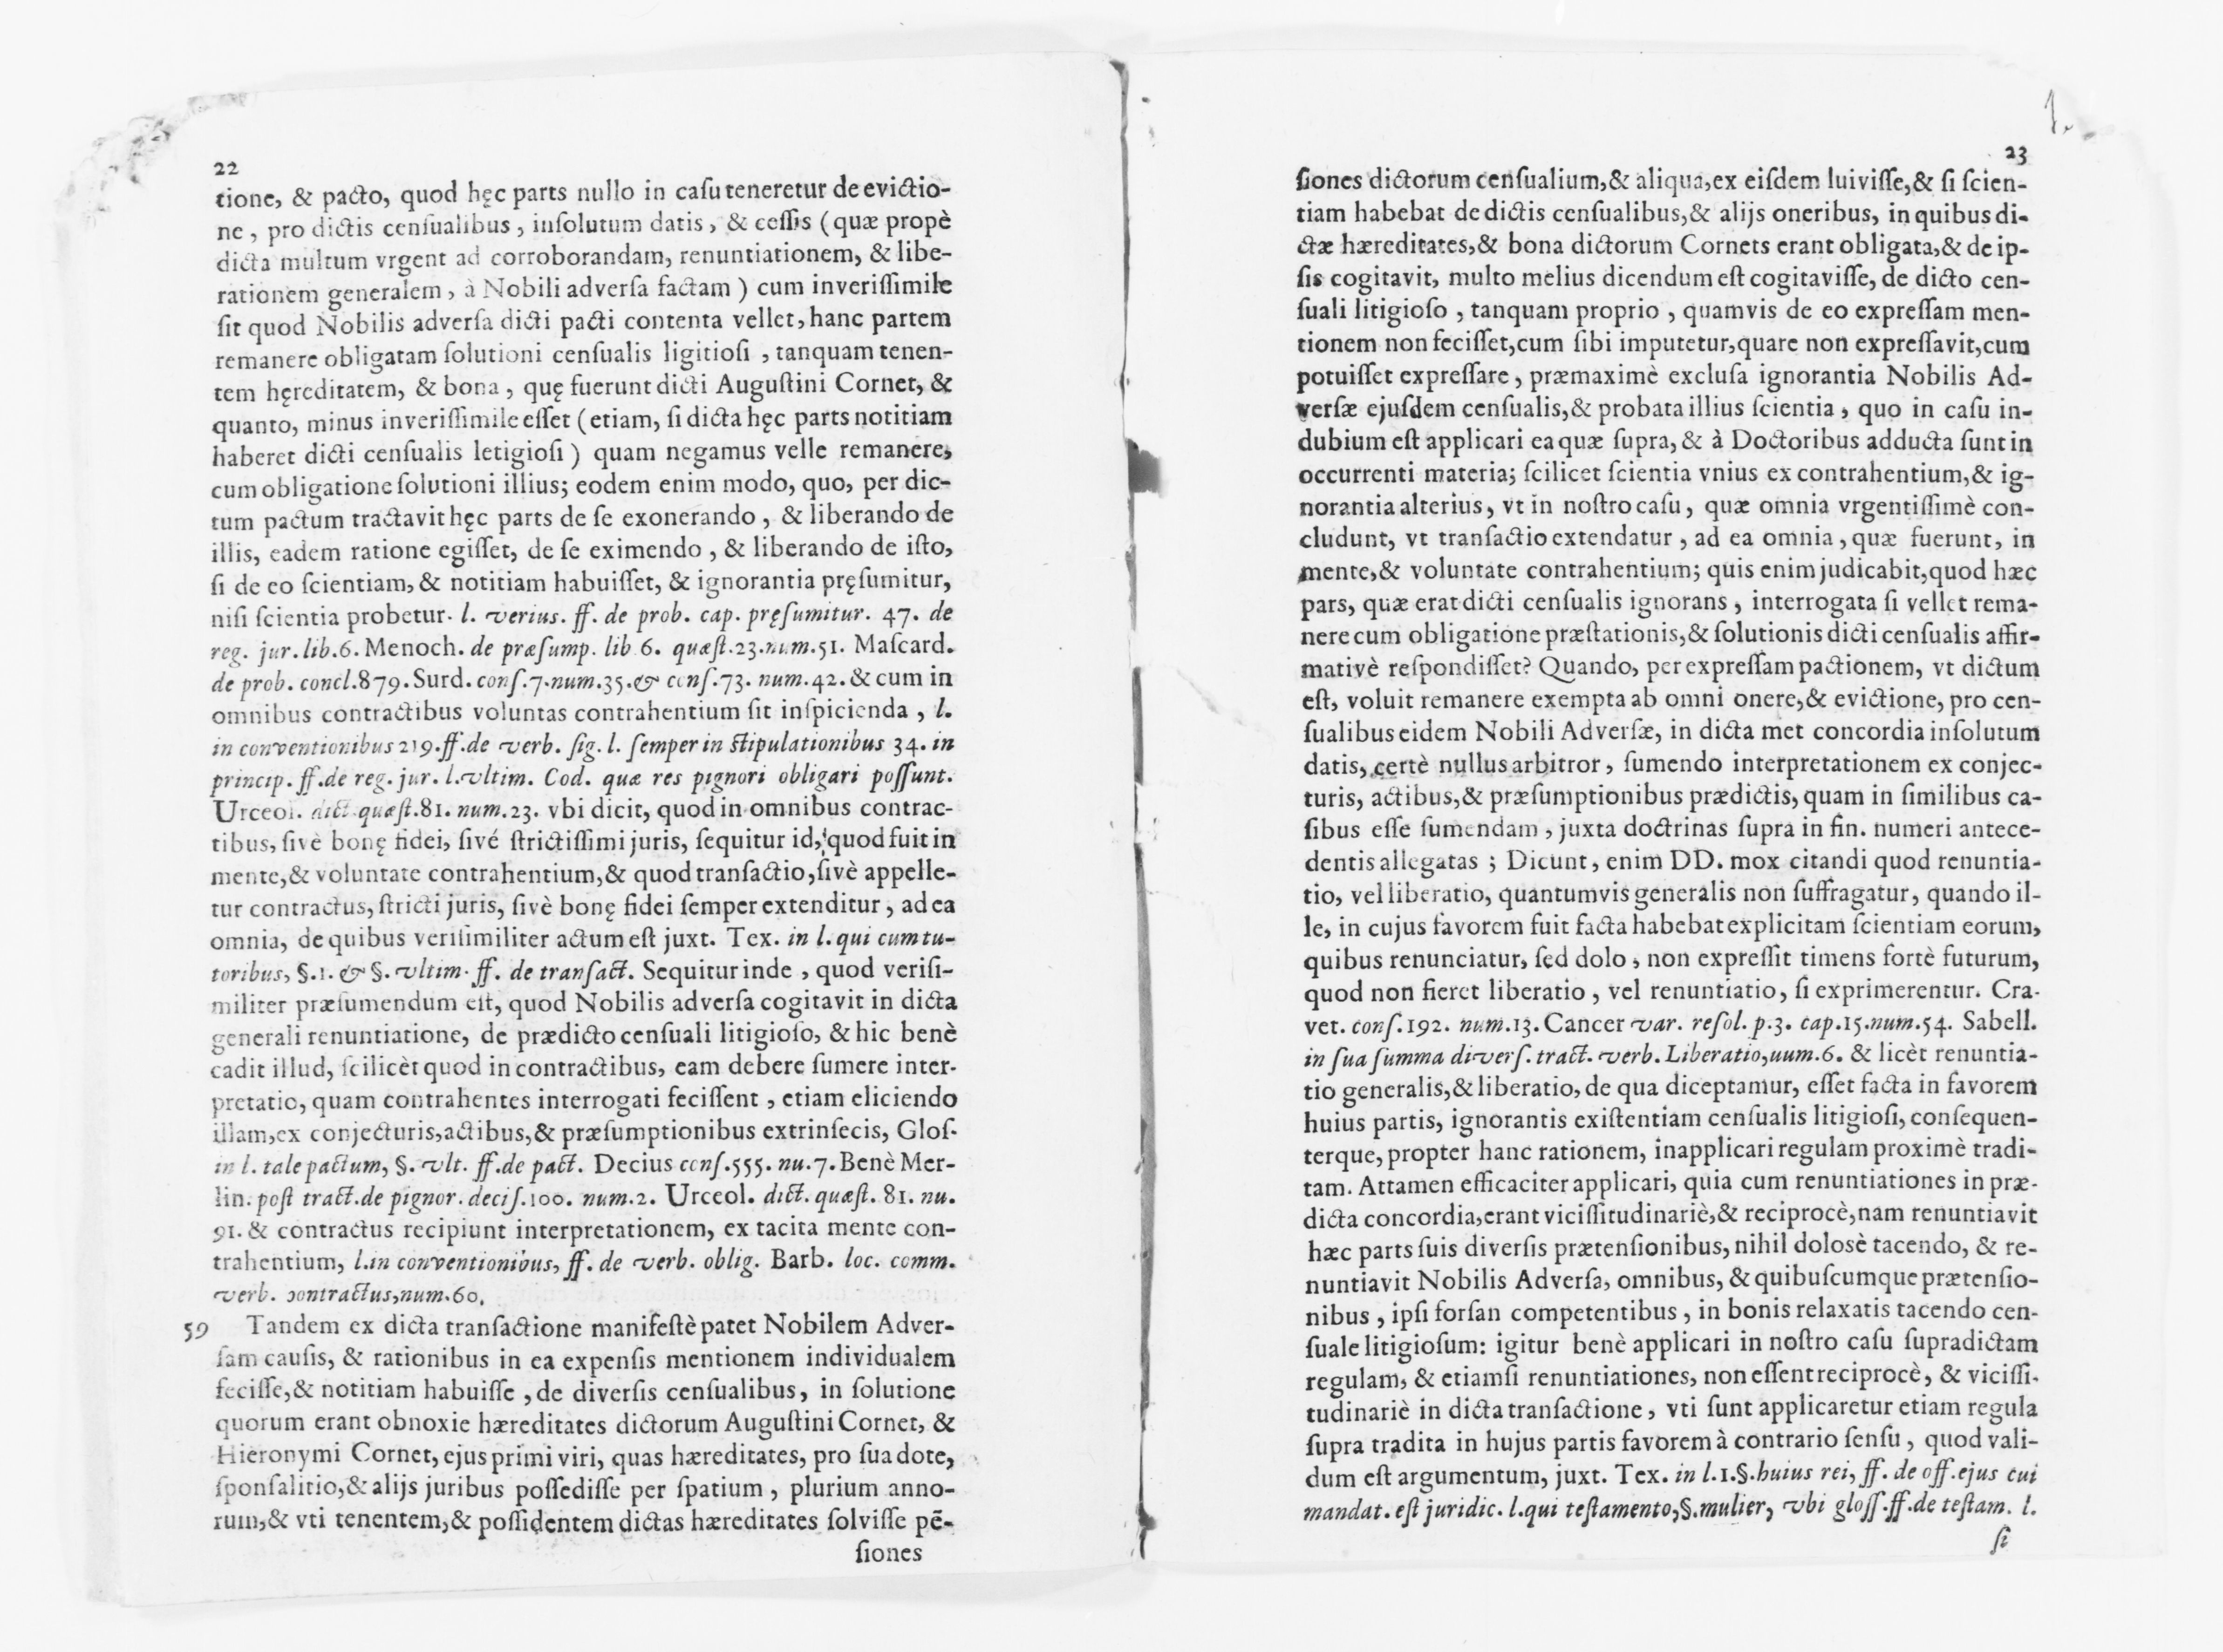 22
tione, & pacto, quod hęc parts nullo in caſu teneretur de evictio-
ne, pro dictis cenſualibus, inſolutum datis, & ceſſis (quæ propè
dicta multum vrgent ad corroborandam, renuntiationem, & libe-
rationem generalem, à Nobili adverſa factam) cum inveriſſimile
ſit quod Nobilis adverſa dicti pacti contenta vellet, hanc partem
remanere obligatam ſolutioni cenſualis ligitioſi, tanquam tenen-
tem hęreditatem, & bona, quę fuerunt dicti Auguſtini Cornet, &
quanto, minus inveriſſimile eſſet (etiam, ſi dicta hęc parts notitiam
haberet dicti cenſualis letigioſi) quam negamus velle remanere,
cum obligatione ſolutioni illius; eodem enim modo, quo, per dic-
tum pactum tractavit hęc parts de ſe exonerando, & liberando de
illis, eadem ratione egiſſet, de ſe eximendo, & liberando de iſto,
ſi de eo ſcientiam, & notitiam habuiſſet, & ignorantia pręſumitur,
niſi ſcientia probetur. l. verius. ff. de prob. cap. pręſumitur. 47. de
reg. jur. lib. 6. Menoch. de præſump. lib 6. quæſt. 23. num. 51. Maſcard.
de prob. concl. 879. Surd. conſ. 7. num. 35. & conſ. 73. num. 42. & cum in
omnibus contractibus voluntas contrahentium ſit inſpicienda, l.
in conventionibus 219. ff. de verb. ſig. l. ſemper in ſtipulationibus 34. in
princip. ff. de reg. jur. l. vltim. Cod. quæ res pignori obligari poſſunt.
Urceol. dict. quæſt. 81. num. 23. vbi dicit, quod in omnibus contrac-
tibus, ſivè bonę fidei, ſivé ſtrictiſſimi juris, ſequitur id, quod fuit in
mente, & voluntate contrahentium, & quod tranſactio, ſivè appelle-
tur contractus, ſtricti juris, ſivè bonę fidei ſemper extenditur, ad ea
omnia, de quibus veriſimiliter actum eſt juxt. Tex. in l. qui cum tu-
toribus, §. 1. & §. vltim. ff. de tranſact. Sequitur inde, quod veriſi-
militer præſumendum eſt, quod Nobilis adverſa cogitavit in dicta
generali renuntiatione, de prædicto cenſuali litigioſo, & hic benè
cadit illud, ſcilicèt quod in contractibus, eam debere ſumere inter-
pretatio, quam contrahentes interrogati feciſſent, etiam eliciendo
illam, ex conjecturis, actibus, & præſumptionibus extrinſecis, Gloſ.
in l. tale pactum, §. vlt. ff. de pact. Decius conſ. 555. nu. 7. Benè Mer-
lin. poſt tract. de pignor. deciſ. 100. num. 2. Urceol. dict. quæſt. 81. nu.
91. & contractus recipiunt interpretationem, ex tacita mente con-
trahentium, l. in conventionibus, ff. de verb. oblig. Barb. loc. comm.
verb. contractus, num. 60.
59 Tandem ex dicta tranſactione manifeſtè patet Nobilem Adver-
ſam cauſis, & rationibus in ea expenſis mentionem individualem
feciſſe, & notitiam habuiſſe, de diverſis cenſualibus, in ſolutione
quorum erant obnoxie hæreditates dictorum Auguſtini Cornet, &
Hieronymi Cornet, ejus primi viri, quas hæreditates, pro ſua dote,
ſponſalitio, & alijs juribus poſſediſſe per ſpatium, plurium anno-
rum, & vti tenentem, & poſſidentem dictas hæreditates ſolviſſe pē-
ſiones
1.
23
ſiones dictorum cenſualium, & aliqua, ex eiſdem luiviſſe, & ſi ſcien-
tiam habebat de dictis cenſualibus, & alijs oneribus, in quibus di-
ctæ hæreditates, & bona dictorum Cornets erant obligata, & de ip-
ſis cogitavit, multo melius dicendum eſt cogitaviſſe, de dicto cen-
ſuali litigioſo, tanquam proprio, quamvis de eo expreſſam men-
tionem non feciſſet, cum ſibi imputetur, quare non expreſſavit, cum
potuiſſet expreſſare, præmaximè excluſa ignorantia Nobilis Ad-
verſæ ejuſdem cenſualis, & probata illius ſcientia, quo in caſu in-
dubium eſt applicari ea quæ ſupra, & à Doctoribus adducta ſunt in
occurrenti materia; ſcilicet ſcientia vnius ex contrahentium, & ig-
norantia alterius, vt in noſtro caſu, quæ omnia vrgentiſſimè con-
cludunt, vt tranſactio extendatur, ad ea omnia, quæ fuerunt, in
mente, & voluntate contrahentium; quis enim judicabit, quod hæc
pars, quæ erat dicti cenſualis ignorans, interrogata ſi vellet rema-
nere cum obligatione præſtationis, & ſolutionis dicti cenſualis affir-
mativè reſpondiſſet? Quando, per expreſſam pactionem, vt dictum
eſt, voluit remanere exempta ab omni onere, & evictione, pro cen-
ſualibus eidem Nobili Adverſæ, in dicta met concordia inſolutum
datis, certè nullus arbitror, ſumendo interpretationem ex conjec-
turis, actibus, & præſumptionibus prædictis, quam in ſimilibus ca-
ſibus eſſe ſumendam, juxta doctrinas ſupra in fin. numeri antece-
dentis allegatas; Dicunt, enim DD. mox citandi quod renuntia-
tio, vel liberatio, quantumvis generalis non ſuffragatur, quando il-
le, in cujus favorem fuit facta habebat explicitam ſcientiam eorum,
quibus renunciatur, ſed dolo, non expreſſit timens fortè futurum,
quod non fieret liberatio, vel renuntiatio, ſi exprimerentur. Cra-
vet. conſ. 192. num. 13. Cancer var. reſol. p. 3. cap. 15. num. 54. Sabell.
in ſua ſumma diverſ. tract. verb. Liberatio, uum. 6. & licèt renuntia-
tio generalis, & liberatio, de qua diceptamur, eſſet facta in favorem
huius partis, ignorantis exiſtentiam cenſualis litigioſi, conſequen-
terque, propter hanc rationem, inapplicari regulam proximè tradi-
tam. Attamen efficaciter applicari, quia cum renuntiationes in præ-
dicta concordia, erant viciſſitudinariè, & reciprocè, nam renuntiavit
hæc parts ſuis diverſis prætenſionibus, nihil dolosè tacendo, & re-
nuntiavit Nobilis Adverſa, omnibus, & quibuſcumque prætenſio-
nibus, ipſi forſan competentibus, in bonis relaxatis tacendo cen-
ſuale litigioſum: igitur benè applicari in noſtro caſu ſupradictam
regulam, & etiamſi renuntiationes, non eſſent reciprocè, & viciſſi-
tudinariè in dicta tranſactione, vti ſunt applicaretur etiam regula
ſupra tradita in hujus partis favorem à contrario ſenſu, quod vali-
dum eſt argumentum, juxt. Tex. in l. 1. §. huius rei, ff. de off. ejus cui
mandat. eſt juridic. l. qui teſtamento, §. mulier, vbi gloſſ. ff. de teſtam. l.
ſi